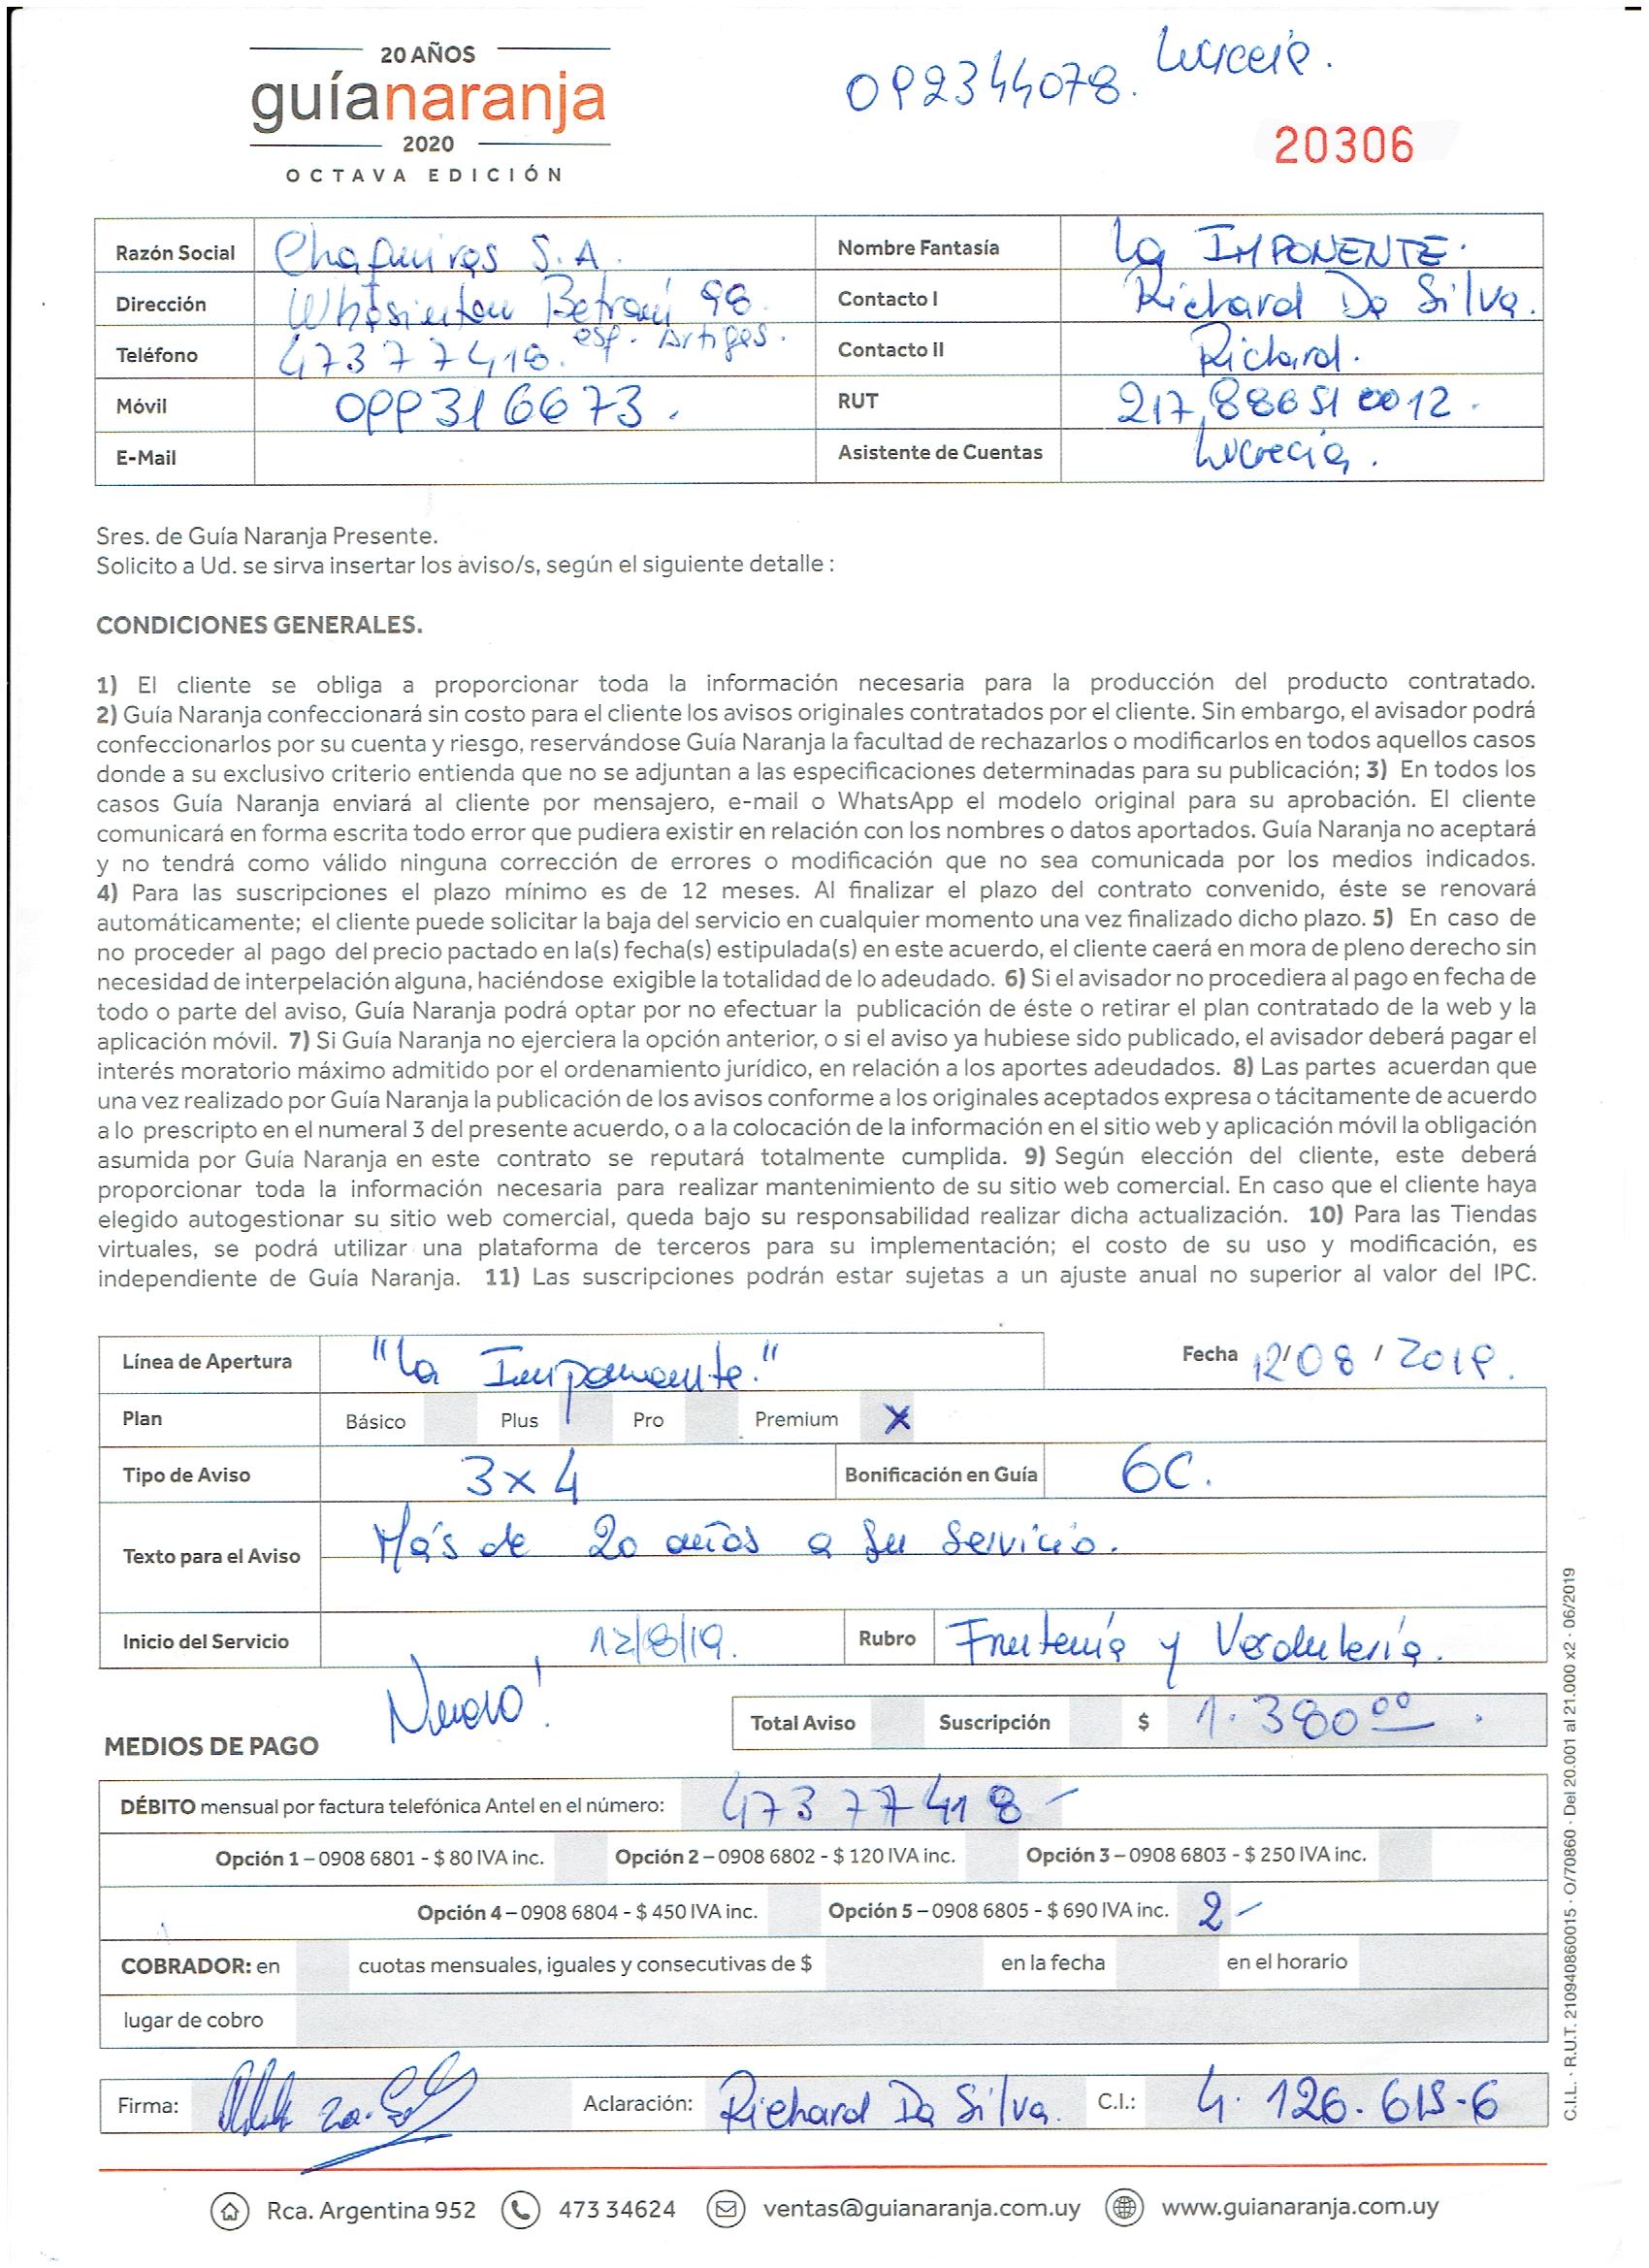 20 AÑOS
guíanaranja
2020
OCTAVA EDICIÓN
092344078. Lucrecia.
20306
Razón Social Chafuiras S.A. Nombre Fantasía La IMPONENTE.
Dirección Whasinton Betrani 98 Contacto I Richard Da Silva.
esq. Artigas.
Teléfono 473 77418. Contacto II Richard.
Móvil 099316673. RUT 217.886510012.
E-Mail Asistente de Cuentas Lucrecia.
Sres. de Guía Naranja Presente.
Solicito a Ud. se sirva insertar los aviso/s, según el siguiente detalle :
CONDICIONES GENERALES.
1) El cliente se obliga a proporcionar toda la información necesaria para la producción del producto contratado.
2) Guía Naranja confeccionará sin costo para el cliente los avisos originales contratados por el cliente. Sin embargo, el avisador podrá
confeccionarlos por su cuenta y riesgo, reservándose Guía Naranja la facultad de rechazarlos o modificarlos en todos aquellos casos
donde a su exclusivo criterio entienda que no se adjuntan a las especificaciones determinadas para su publicación; 3) En todos los
casos Guía Naranja enviará al cliente por mensajero, e-mail o WhatsApp el modelo original para su aprobación. El cliente
comunicará en forma escrita todo error que pudiera existir en relación con los nombres o datos aportados. Guía Naranja no aceptará
y no tendrá como válido ninguna corrección de errores o modificación que no sea comunicada por los medios indicados.
4) Para las suscripciones el plazo mínimo es de 12 meses. Al finalizar el plazo del contrato convenido, éste se renovará
automáticamente; el cliente puede solicitar la baja del servicio en cualquier momento una vez finalizado dicho plazo. 5) En caso de
no proceder al pago del precio pactado en la(s) fecha(s) estipulada(s) en este acuerdo, el cliente caerá en mora de pleno derecho sin
necesidad de interpelación alguna, haciéndose exigible la totalidad de lo adeudado. 6) Si el avisador no procediera al pago en fecha de
todo o parte del aviso, Guía Naranja podrá optar por no efectuar la publicación de éste o retirar el plan contratado de la web y la
aplicación móvil. 7) Si Guía Naranja no ejerciera la opción anterior, o si el aviso ya hubiese sido publicado, el avisador deberá pagar el
interés moratorio máximo admitido por el ordenamiento jurídico, en relación a los aportes adeudados. 8) Las partes acuerdan que
una vez realizado por Guía Naranja la publicación de los avisos conforme a los originales aceptados expresa o tácitamente de acuerdo
a lo prescripto en el numeral 3 del presente acuerdo, o a la colocación de la información en el sitio web y aplicación móvil la obligación
asumida por Guía Naranja en este contrato se reputará totalmente cumplida. 9) Según elección del cliente, este deberá
proporcionar toda la información necesaria para realizar mantenimiento de su sitio web comercial. En caso que el cliente haya
elegido autogestionar su sitio web comercial, queda bajo su responsabilidad realizar dicha actualización. 10) Para las Tiendas
virtuales, se podrá utilizar una plataforma de terceros para su implementación; el costo de su uso y modificación, es
independiente de Guía Naranja. 11) Las suscripciones podrán estar sujetas a un ajuste anual no superior al valor del IPC.
Línea de Apertura "La Imponente." Fecha 12/08/2019.
Plan Básico Plus Pro Premium X
Tipo de Aviso 3x4 Bonificación en Guía 6C.
Texto para el Aviso Más de 20 años a su servicio.
Inicio del Servicio 12/8/19. Rubro Frutería y Verdulería.
Nuevo!
Total Aviso Suscripción $ 1.380 00
MEDIOS DE PAGO
DÉBITO mensual por factura telefónica Antel en el número: 473 77418-
Opción 1 – 0908 6801 - $ 80 IVA inc. Opción 2 – 0908 6802 - $ 120 IVA inc. Opción 3 – 0908 6803 - $ 250 IVA inc.
Opción 4 – 0908 6804 - $ 450 IVA inc. Opción 5 – 0908 6805 - $ 690 IVA inc. 2-
COBRADOR: en cuotas mensuales, iguales y consecutivas de $ en la fecha en el horario
lugar de cobro
Firma: Aclaración: Richard Da Silva. C.I.: 4.126.615-6
Rca. Argentina 952 473 34624 ventas@guianaranja.com.uy www.guianaranja.com.uy
C.I.L. · R.U.T. 210940860015 · O/70860 · Del 20.001 al 21.000 x2 · 06/2019